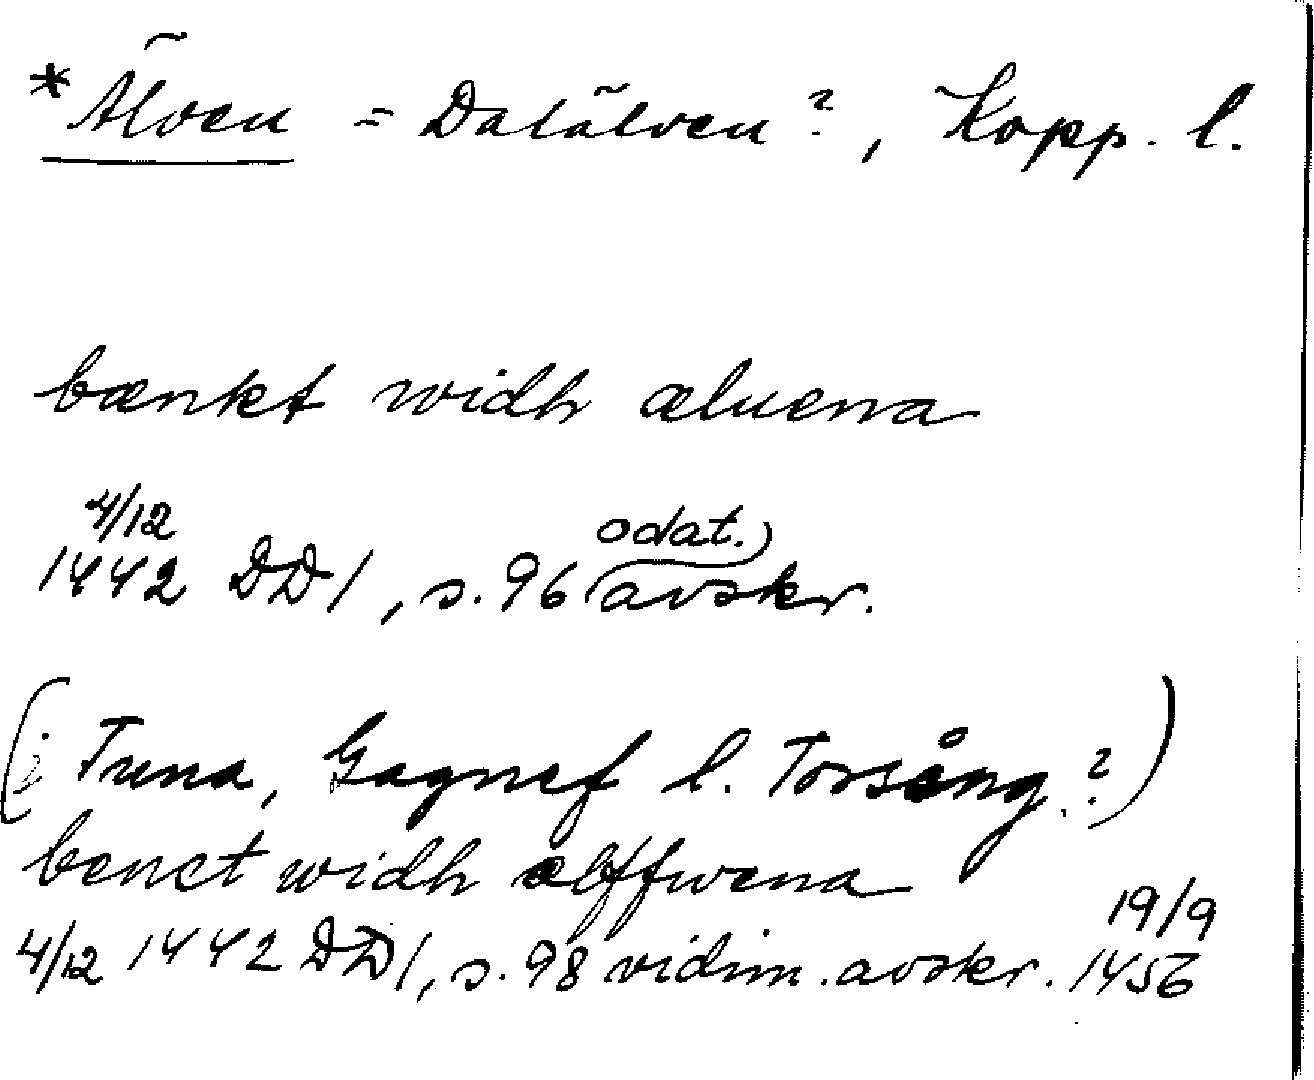 *Älven = Dalälven?, Kopp. l.
bænkt widh æluena
4/12
1442 DD1, s. 96 (odat.) avskr.
(i Tuna, Gagnef l. Torsång?)
benct widh elffwena
4/12 1442 DD1, s. 98 vidim. avskr. 19/9 1456